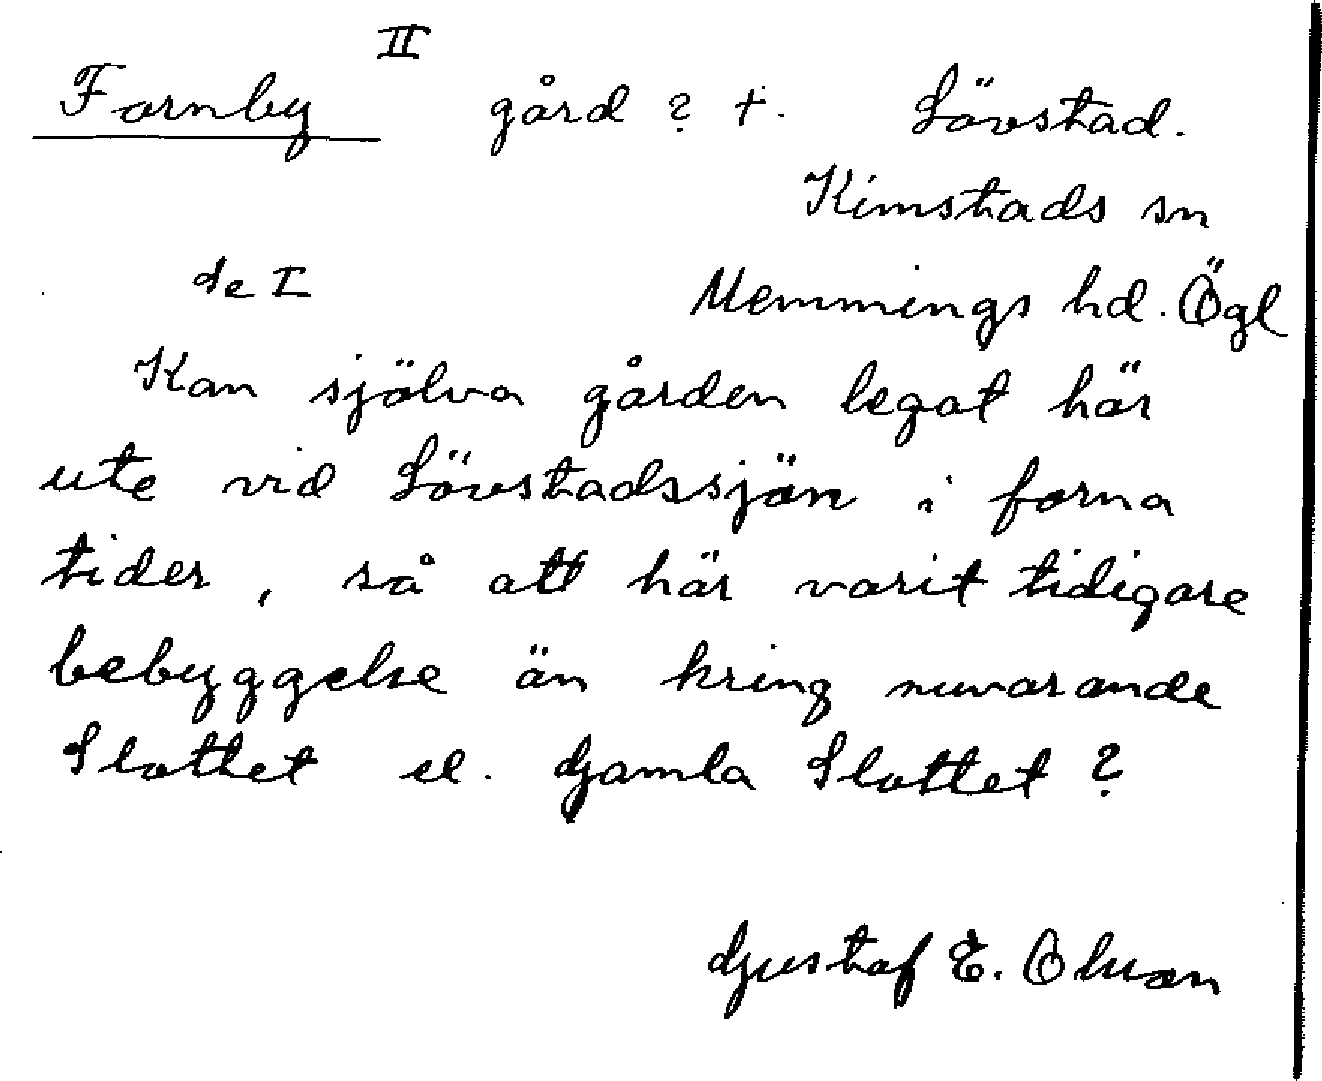 Fornby II gård ? †. Lövstad.
Kimstads sn
Se I Memmings hd. Ögl
Kan själva gården legat här
ute vid Lövstadssjön i forna
tider, så att här varit tidigare
bebyggelse än kring nuvarande
Slottet el. Gamla Slottet ?
Gustaf E. Olson